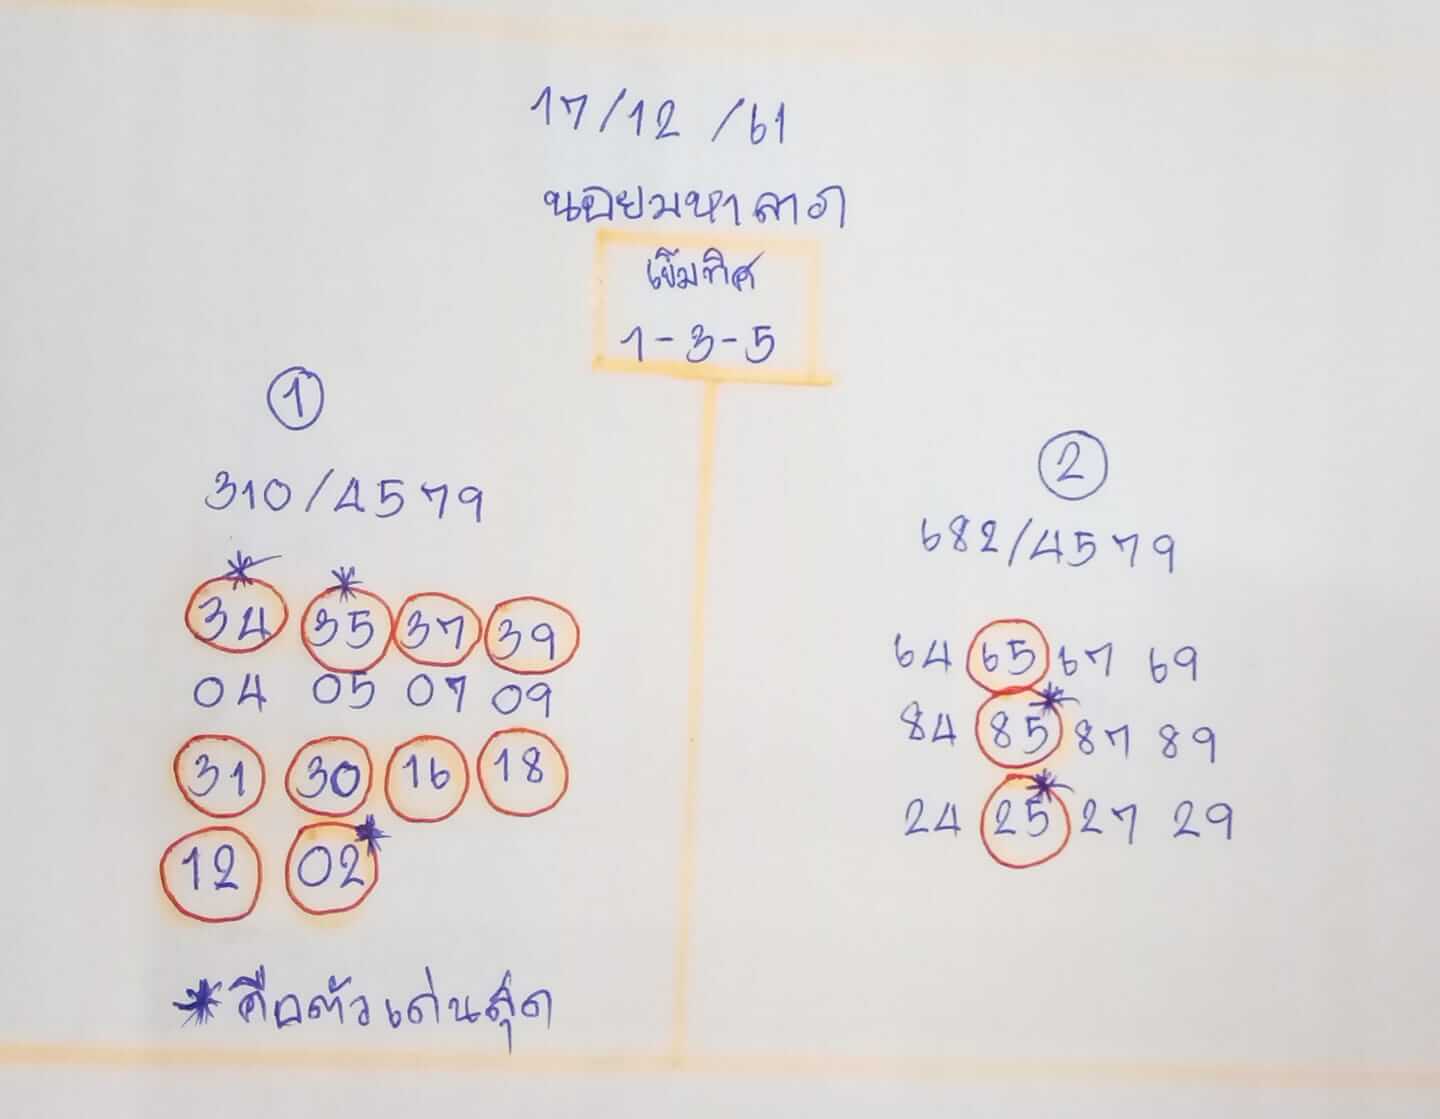 17/12/61
นอยมหาลาภ
เข็มทิศ
1-3-5
1
310/4579
34 35 37 39
04 05 07 09
31 30 16 18
12 02
* คือตัวเด่นสุด
2
682/4579
64 65 67 69
84 85 87 89
24 25 27 29